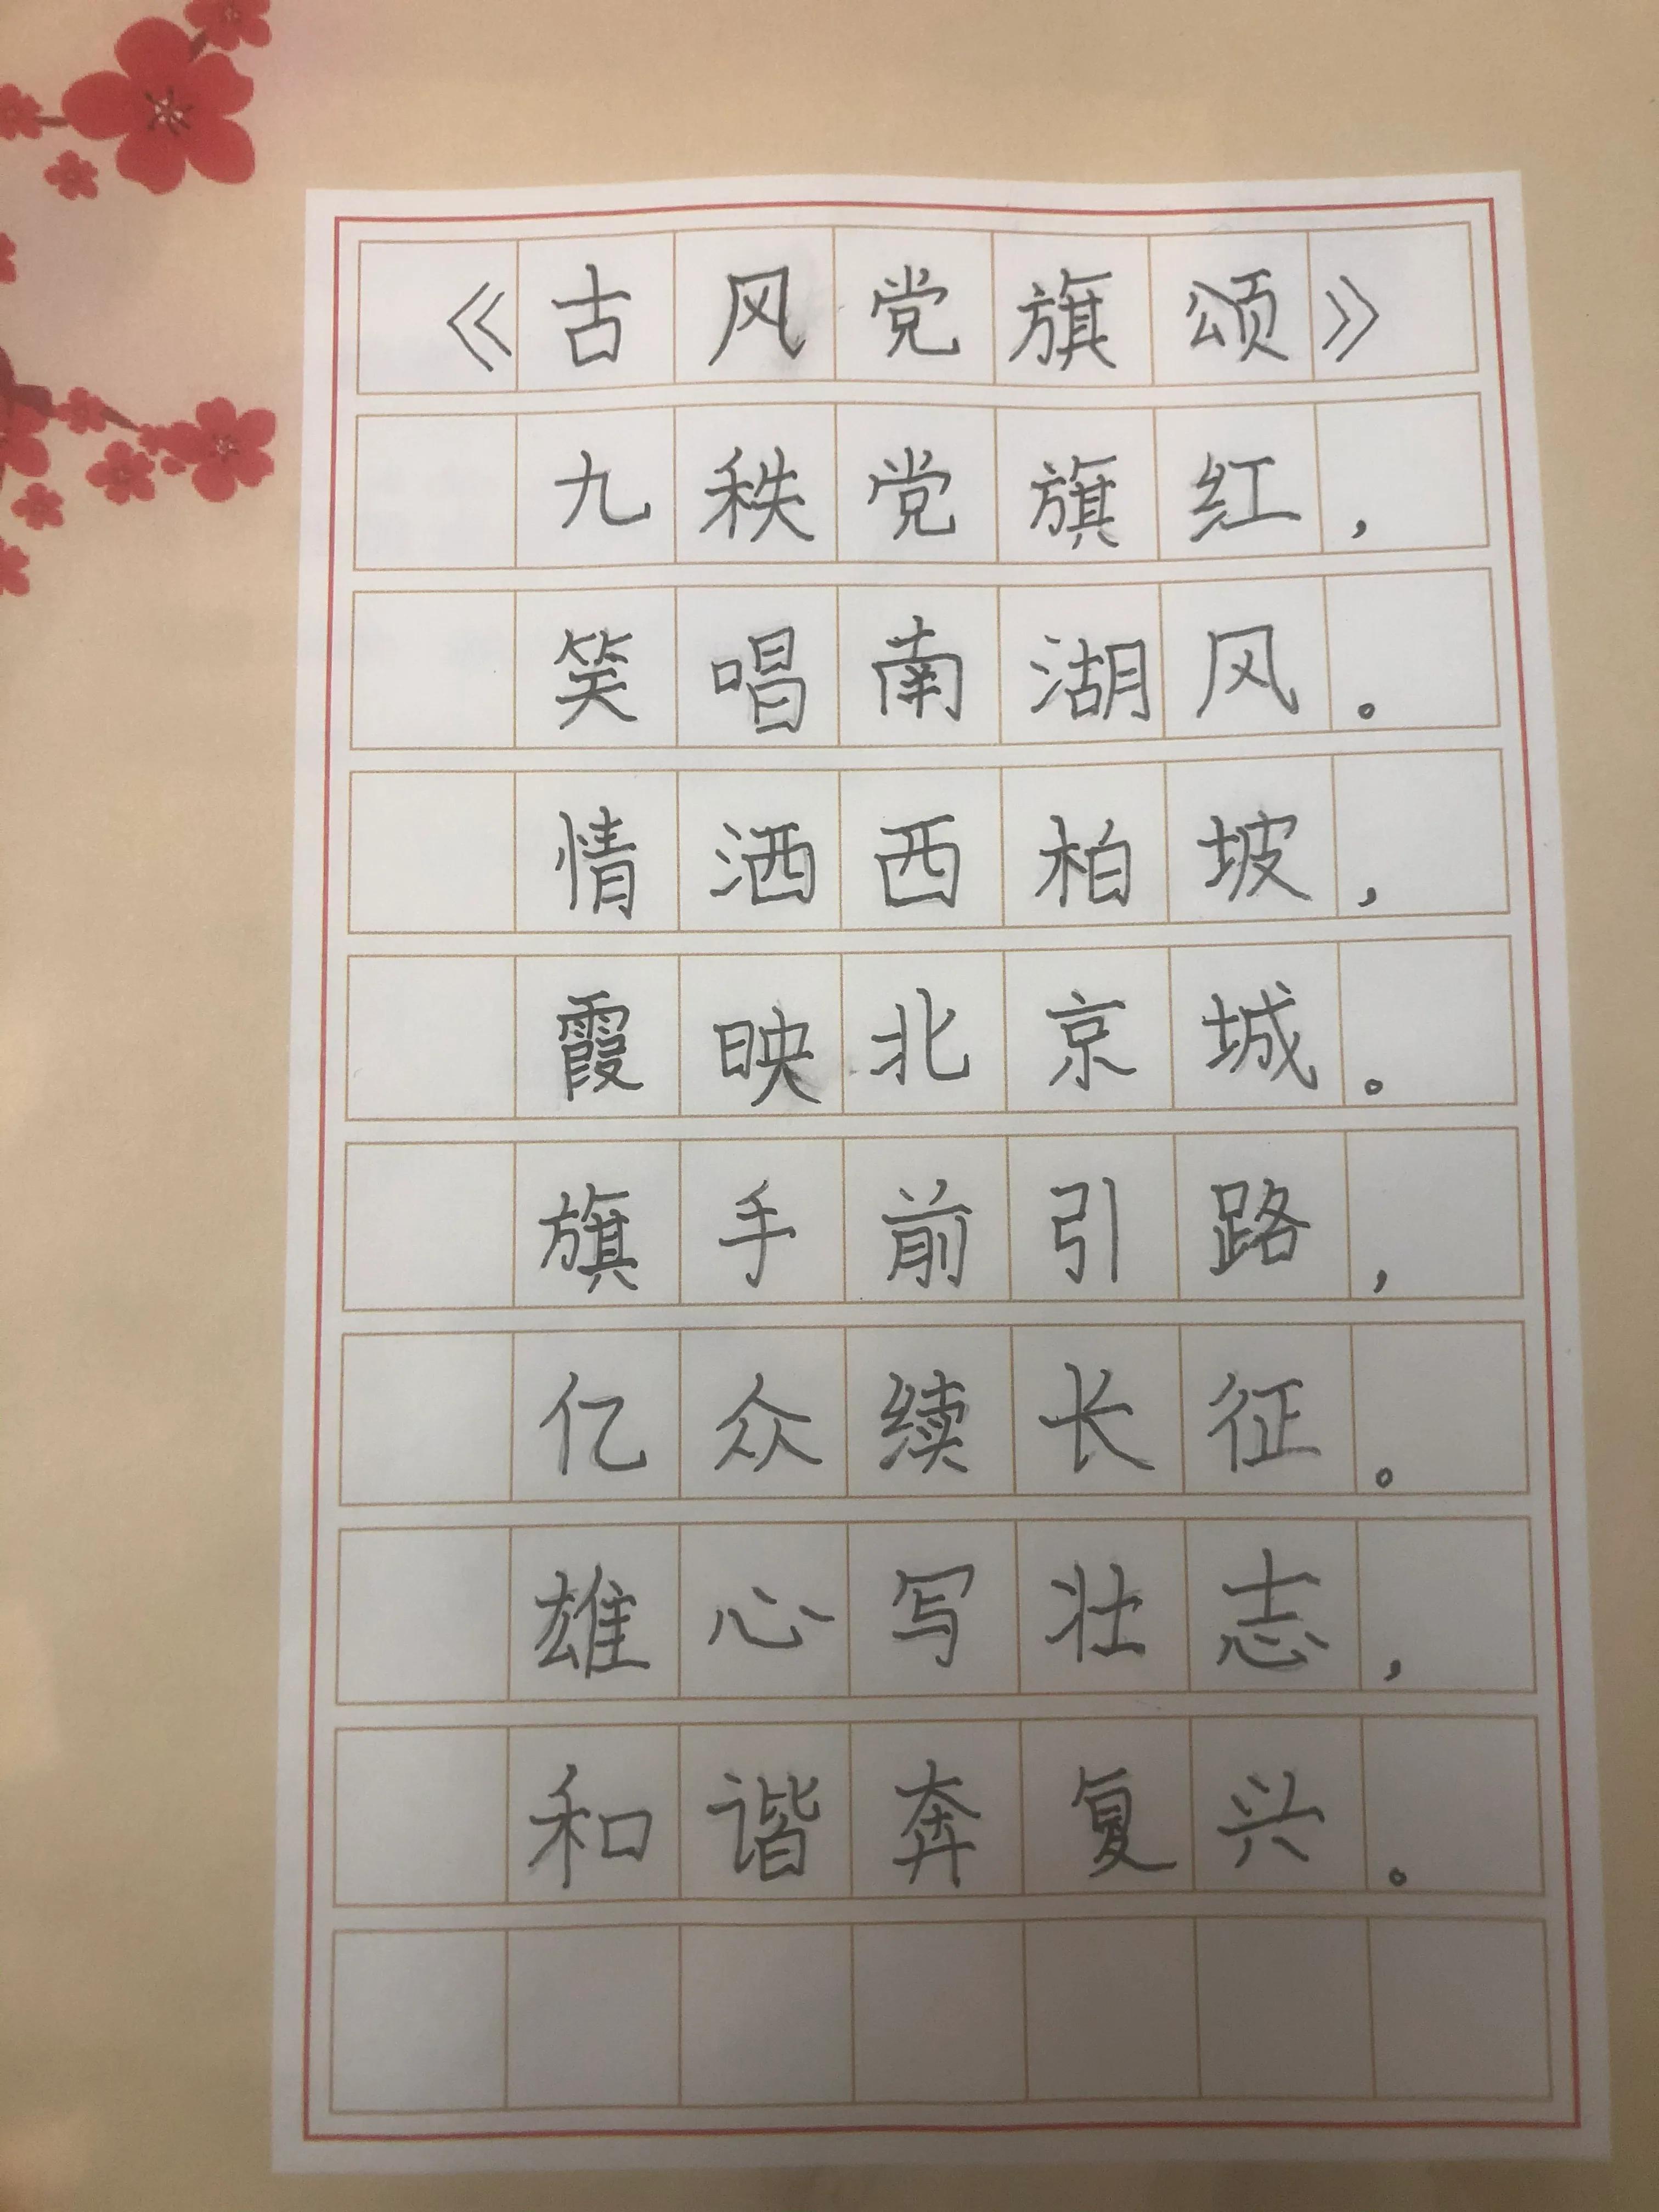 《古风党旗颂》
九秩党旗红，
笑唱南湖风。
情洒西柏坡，
霞映北京城。
旗手前引路，
亿众续长征。
雄心写壮志，
和谐奔复兴。